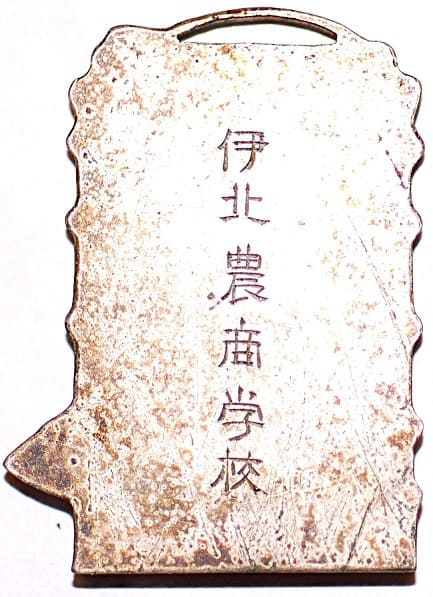 伊北農商学校